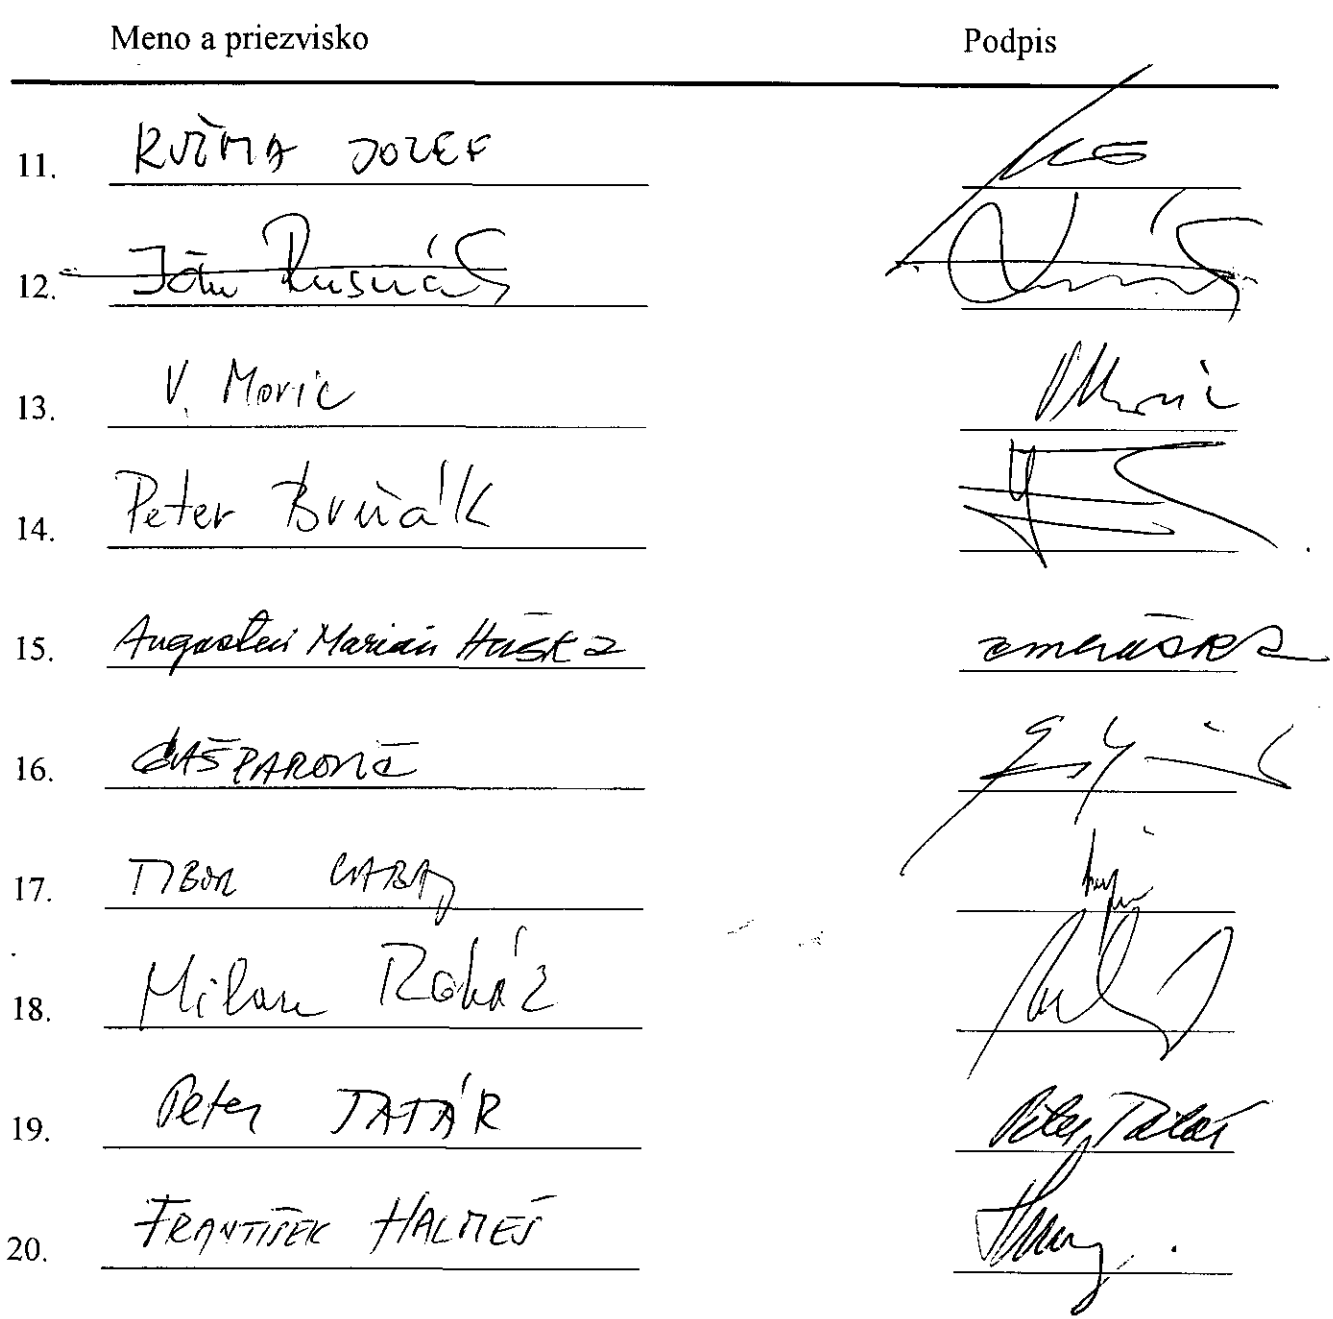 Meno a priezvisko Podpis
11. KUŽMA JOZEF
12. Ján Rusnák
13. V. Moric
14. Peter Brňák
15. Augustín Marián Húska amhúska
16. GAŠPAROVIČ
17. TIBOR CABAJ
18. Milan Reháč
19. Peter TATÁR Peter Tatár
20. FRANTIŠEK HALMEŠ